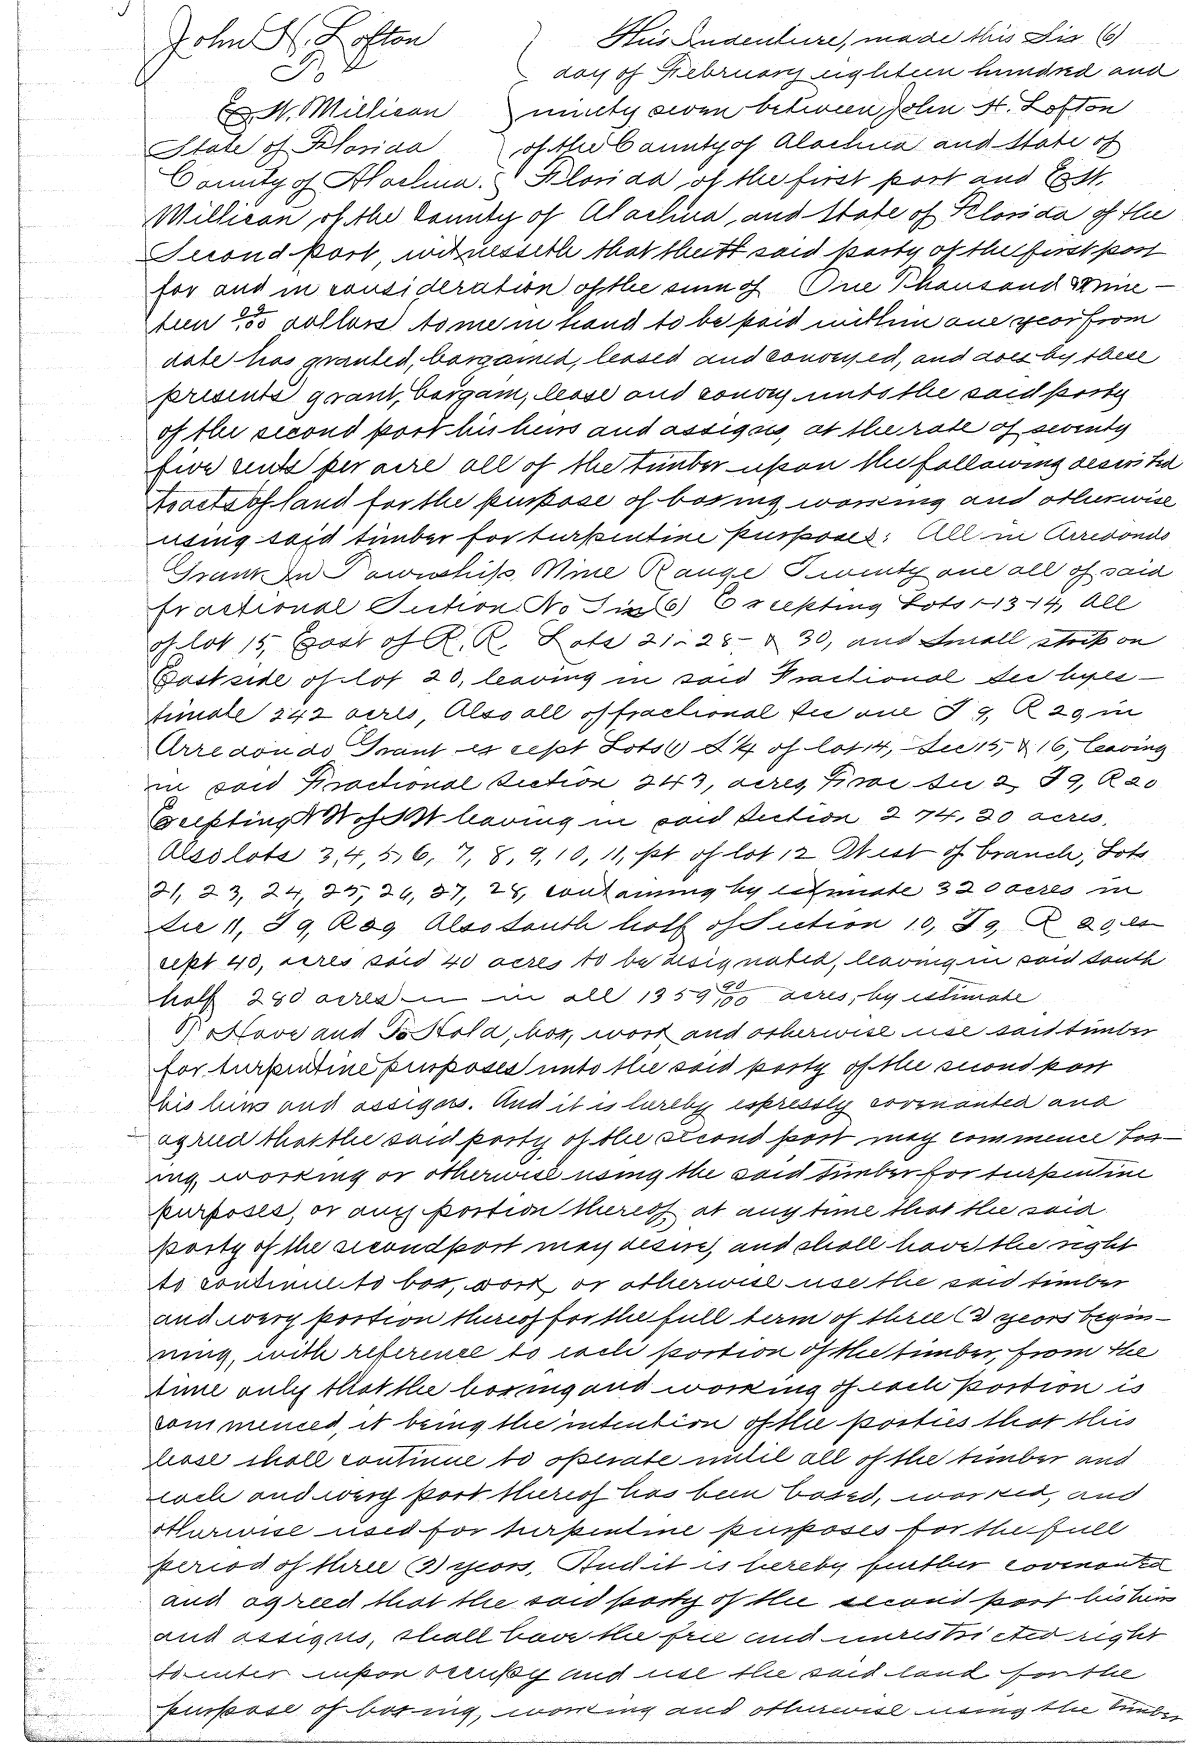 John H. Lofton
To
E. W. Millican
State of Florida
County of Alachua.
This Indenture, made this Six (6)
day of February eighteen hundred and
ninety seven between John H. Lofton
of the County of Alachua and State of
Florida of the first part and E. W.
Millican of the County of Alachua, and State of Florida of the
Second part, witnesseth that the said party of the first part
for and in consideration of the sum of One Thousand & Nine-
teen dollars to me in hand to be paid within one year from
date has granted, bargained, leased and conveyed, and does by these
presents grant, bargain, lease and convey unto the said party
of the second part his heirs and assigns, at the rate of seventy
five cents per acre all of the timber upon the following described
tracts of land for the purpose of boxing, working and otherwise
using said timber for turpentine purposes: All in Arredondo
Grant In Township Nine Range Twenty one all of said
fractional Section No Six (6) Excepting Lots 1-13-14, All
of lot 15, East of R. R. Lots 21-28- & 30, and Small strip on
East side of lot 20, leaving in said Fractional Sec by es-
timate 242 acres, Also all of fractional Sec one T 9, R 20 in
Arredondo Grant except Lots of lot 14, Sec 15, & 16, leaving
in said Fractional Section 243, acres, Frac Sec 2, T 9, R 20
Excepting NW of NW leaving in said Section 274.20 acres,
Also lots 3, 4, 5, 6, 7, 8, 9, 10, 11, pt of lot 12 West of branch, Lots
21, 23, 24, 25, 26, 27, 28, containing by estimate 320 acres in
Sec 11, T 9, R 20 Also South half of Section 10, T 9, R 20, ex
cept 40, acres said 40 acres to be designated, leaving in said South
half 280 acres in all 1359 acres, by estimate
To Have and To Hold, box, work and otherwise use said timber
for turpentine purposes unto the said party of the second part
his heirs and assigns. And it is hereby expressly covenanted and
agreed that the said party of the second part may commence box-
ing, working or otherwise using the said timber for turpentine
purposes, or any portion thereof, at any time that the said
party of the second part may desire, and shall have the right
to continue to box, work, or otherwise use the said timber
and every portion thereof for the full term of three (3) years begin-
ning, with reference to each portion of the timber, from the
time only that the boxing and working of each portion is
commenced, it being the intention of the parties that this
lease shall continue to operate until all of the timber and
each and every part thereof has been boxed, worked, and
otherwise used for turpentine purposes for the full
period of three (3) years, And it is hereby further covenanted
and agreed that the said party of the second part his heirs
and assigns, shall have the free and unrestricted right
to enter upon occupy and use the said land for the
purpose of boxing, working and otherwise using the timber